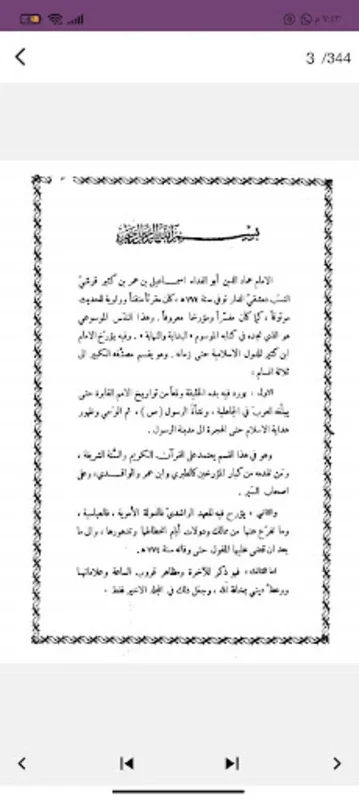 ٧:١٣ م
3 /344
بسم الله الرحمن الرحيم
الامام عماد الدين أبو الفداء اسماعيل بن عمر بن كثير قرشي
النسب دمشقي الدار توفي سنة ٧٧٤ه، كان مقرئا متقنا وراوية للحديث
موثوقا، كما كان مفسرا ومؤرخا معروفا. وهذا النفس الموسوعي
هو الذي تجده في كتابه الموسوم «البداية والنهاية». وفيه يؤرخ الامام
ابن كثير للدول الاسلامية حتى زمانه. وهو يقسم مصنفه الكبير الى
ثلاثة اقسام:
الاول، يورد فيه بدء الخليقة ولمعا من تواريخ الامم الغابرة حتى
يبلغ العرب في الجاهلية، ونشأة الرسول (ص)، ثم الوحي وظهور
هداية الاسلام حتى الهجرة الى مدينة الرسول.
وهو في هذا القسم يعتمد على القرآن الكريم والسنة الشريفة،
ومن تقدمه من كبار المؤرخين كالطبري وابن عمر والواقدي، وعلى
اصحاب السير.
والثاني، يؤرخ فيه للعهد الراشدي فالدولة الأموية، فالعباسية،
وما تفرع عنها من ممالك ودولات أيام انحطاطها وتدهورها، والى ما
بعد ان قضى عليها المغول حتى وفاته سنة ٧٧٤ه.
اما الثالث، فهو ذكر للآخرة ومظاهر قروب الساعة وعلاماتها
ووعظ ديني بمخافة الله، وجعل ذلك في المجلد الاخير فقط.